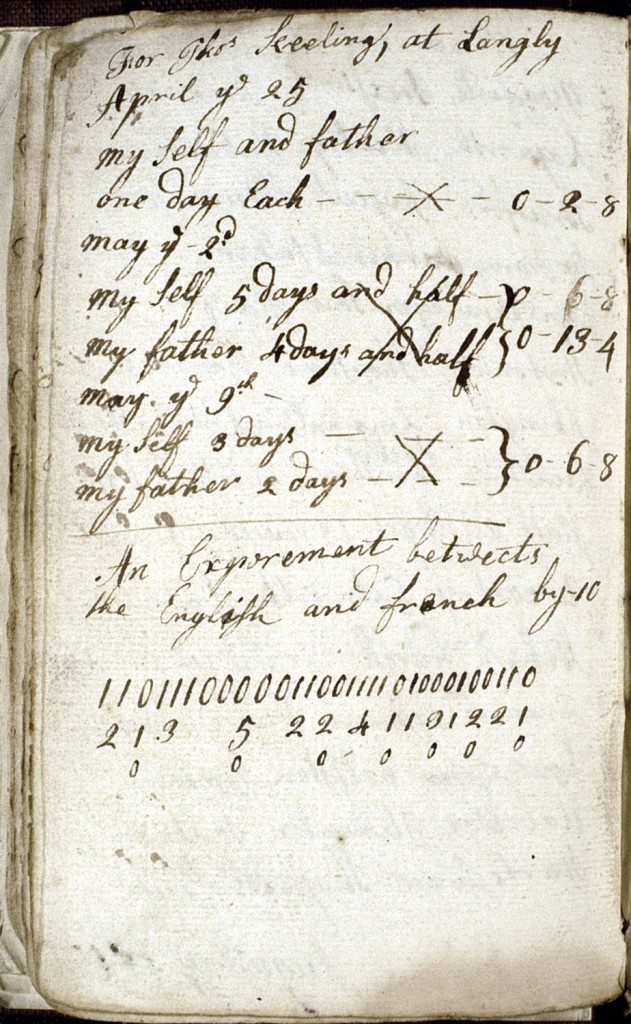 For Thos Keeling, at Langly
April ye 25
my self and father
one day Each - - X - 0-2-8
may ye 2d
my self 5 days and half - p - 6-8
my father 4 days and half } 0-13-4
may. ye 9th -
my self 3 days - -
my father 2 days - X - } 0-6-8
An Experement betwects
the English and french by-10
110111000001100111101000100110
2 1 3 5 2 2 4 1 1 3 1 2 2 1
0 0 0 0 0 0 0